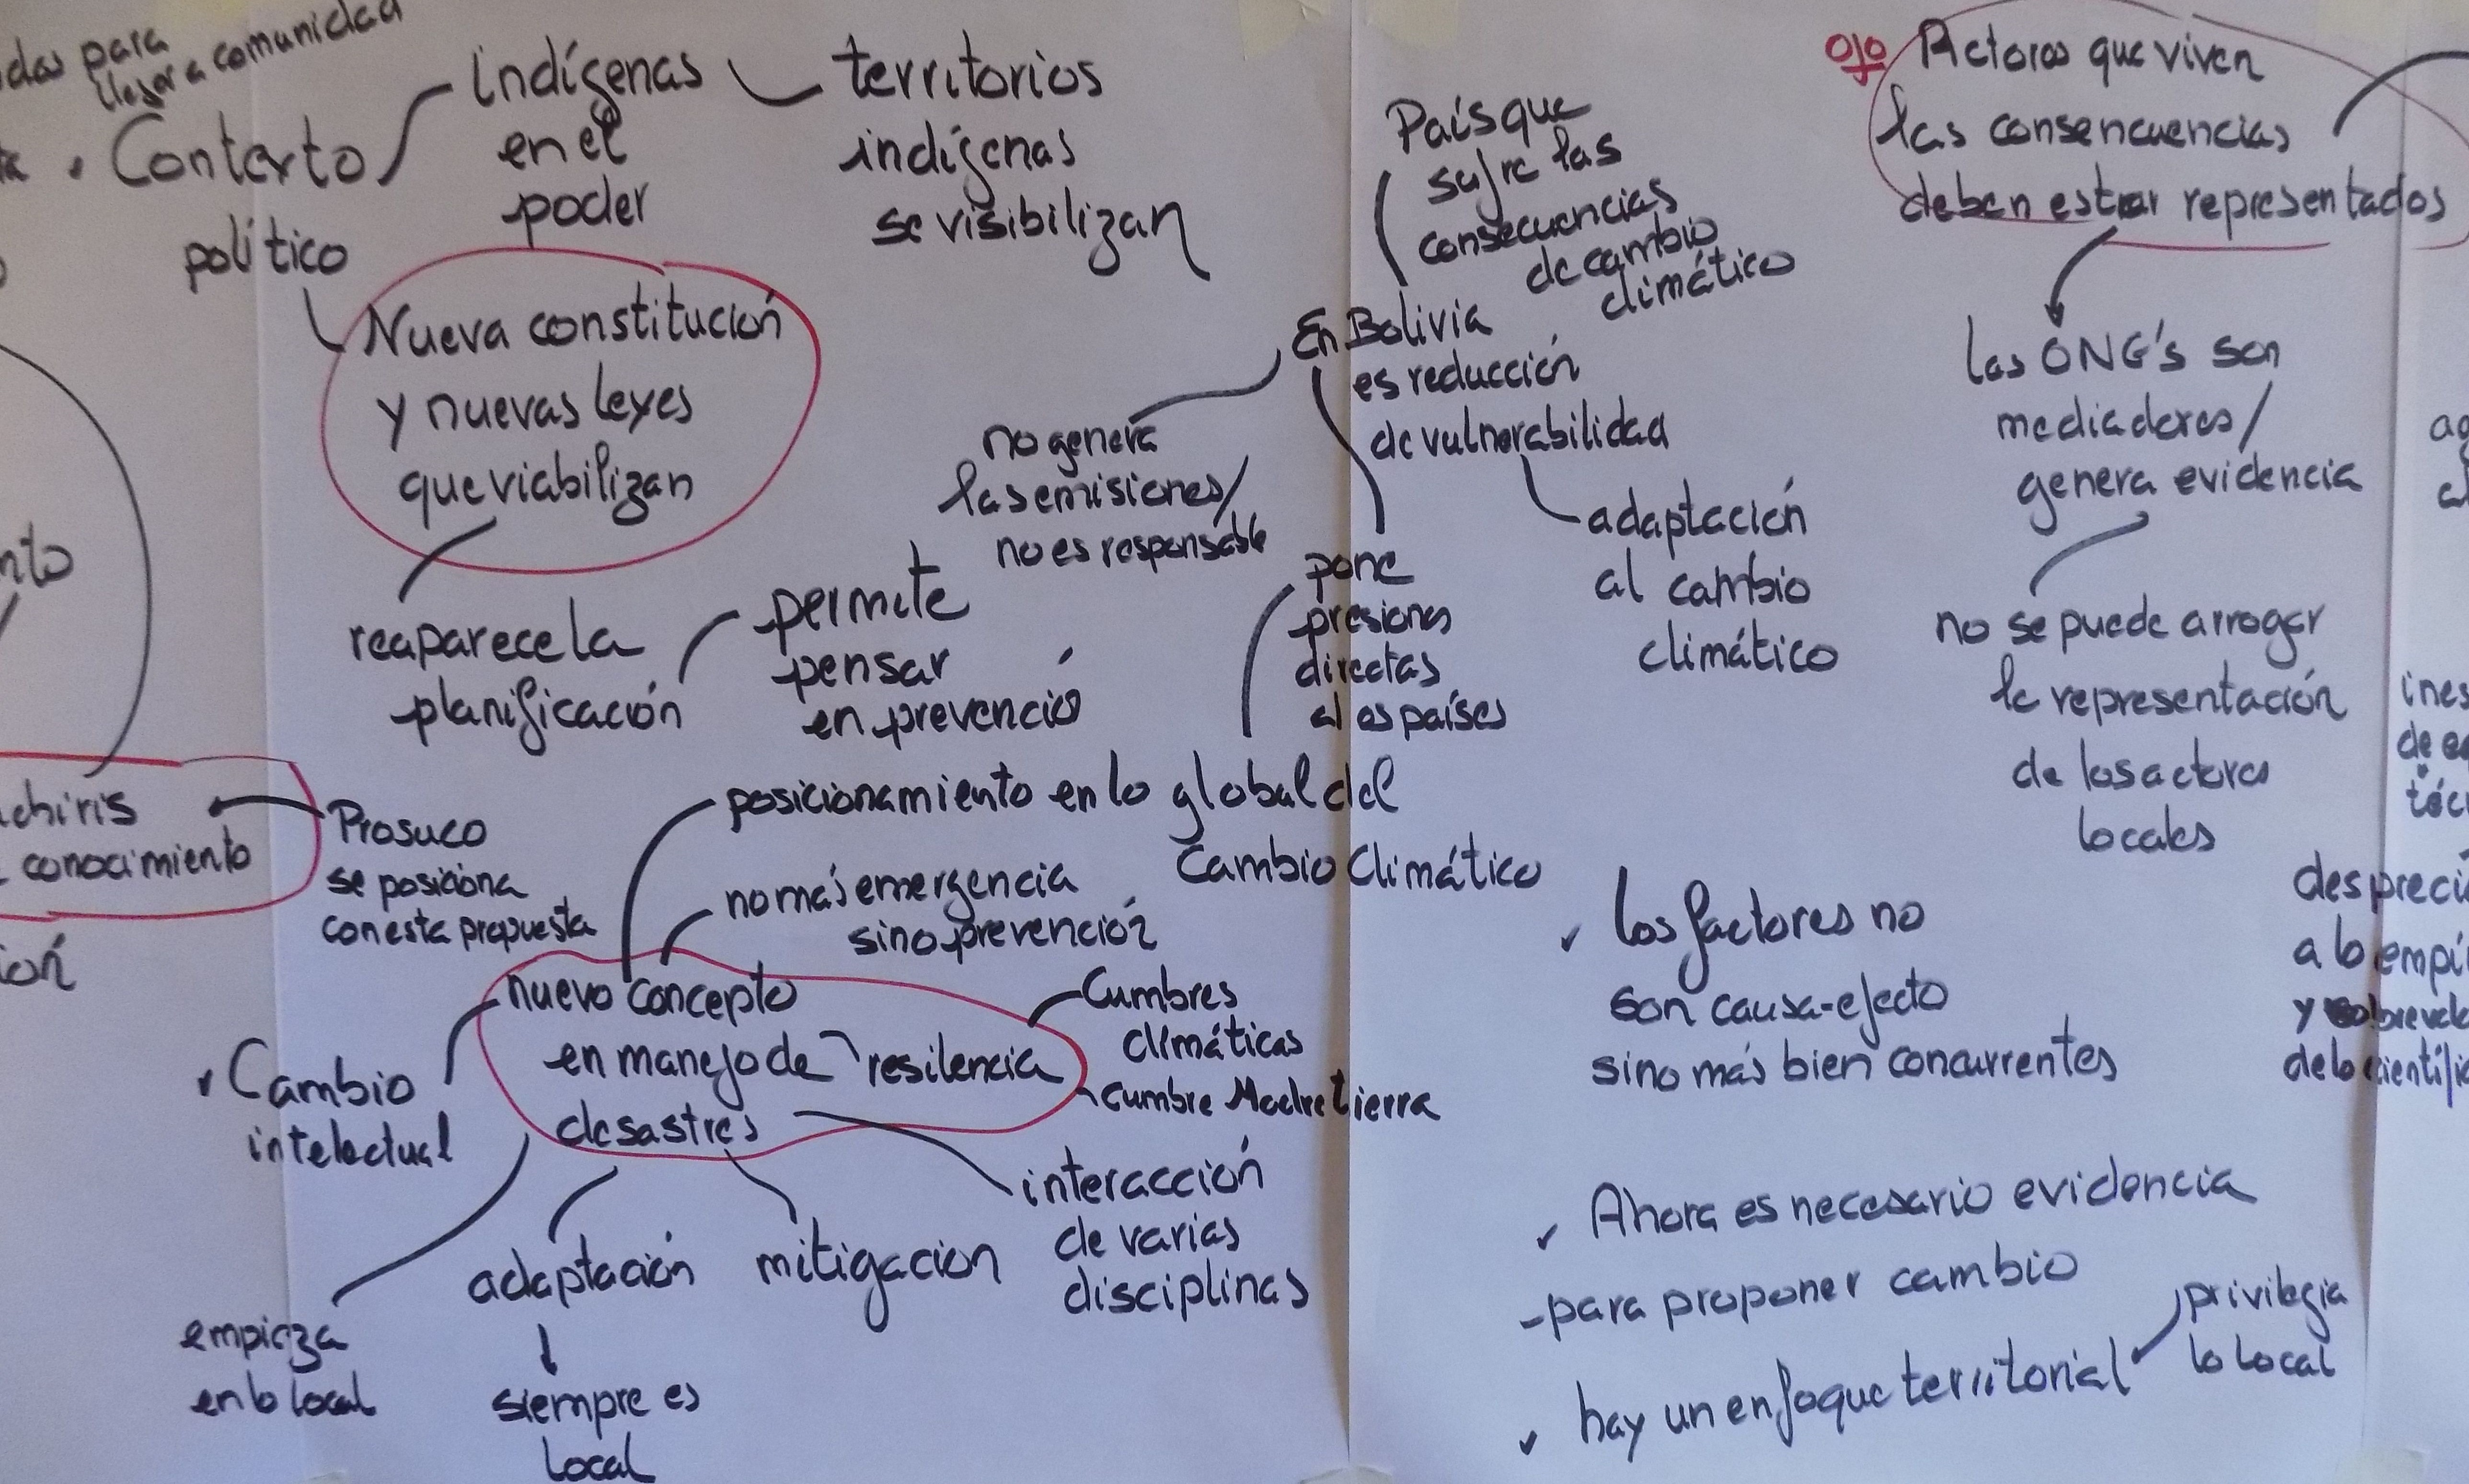 das para
llegar a comunidad
Contexto
político
indígenas
en el
poder
territorios
indígenas
se visibilizan
Nueva constitución
y nuevas leyes
que viabilizan
reaparece la
planificación
permite
pensar
en prevenció
nto
chiris
conocimiento
Prosuco
se posiciona
con esta propuesta
ión
País que
sufre las
consecuencias
de cambio
climático
En Bolivia
es reducción
de vulnerabilidad
no genera
las emisiones/
no es responsable
pone
presiones
directas
a los países
adaptación
al cambio
climático
posicionamiento en lo global del
Cambio Climático
no más emergencia
sino prevención
nuevo concepto
en manejo de resilencia
desastres
Cumbres
climáticas
cumbre Madre tierra
Cambio
intelectual
interacción
de varias
disciplinas
adaptación
siempre es
local
mitigacion
empieza
en lo local
ojo
Actores que viven
las consencuencias
deben estar representados
las ONG's son
mediadores/
genera evidencia
no se puede arrogar
la representación
de los actores
locales
los factores no
son causa-efecto
sino más bien concurrentes
Ahora es necesario evidencia
para proponer cambio
hay un enfoque territorial
privilegia
lo local
ines
de
téc
despreci
a lo empí
y sobreval
de lo científic